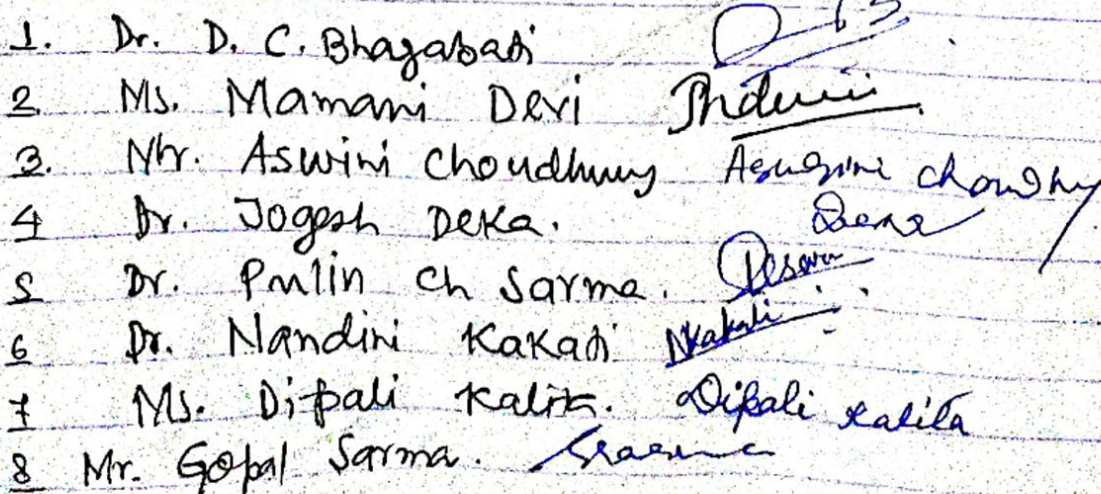 1. Dr. D. C. Bhagabati
2 Ms. Mamani Devi
3. Mr. Aswini Choudhury Aswini Chowdhy
4 Dr. Jogesh Deka.
5 Dr. Pulin Ch Sarma.
6 Dr. Nandini Kakati NKakati
7 Ms. Dipali Kalita. Dipali Kalita
8 Mr. Gopal Sarma.